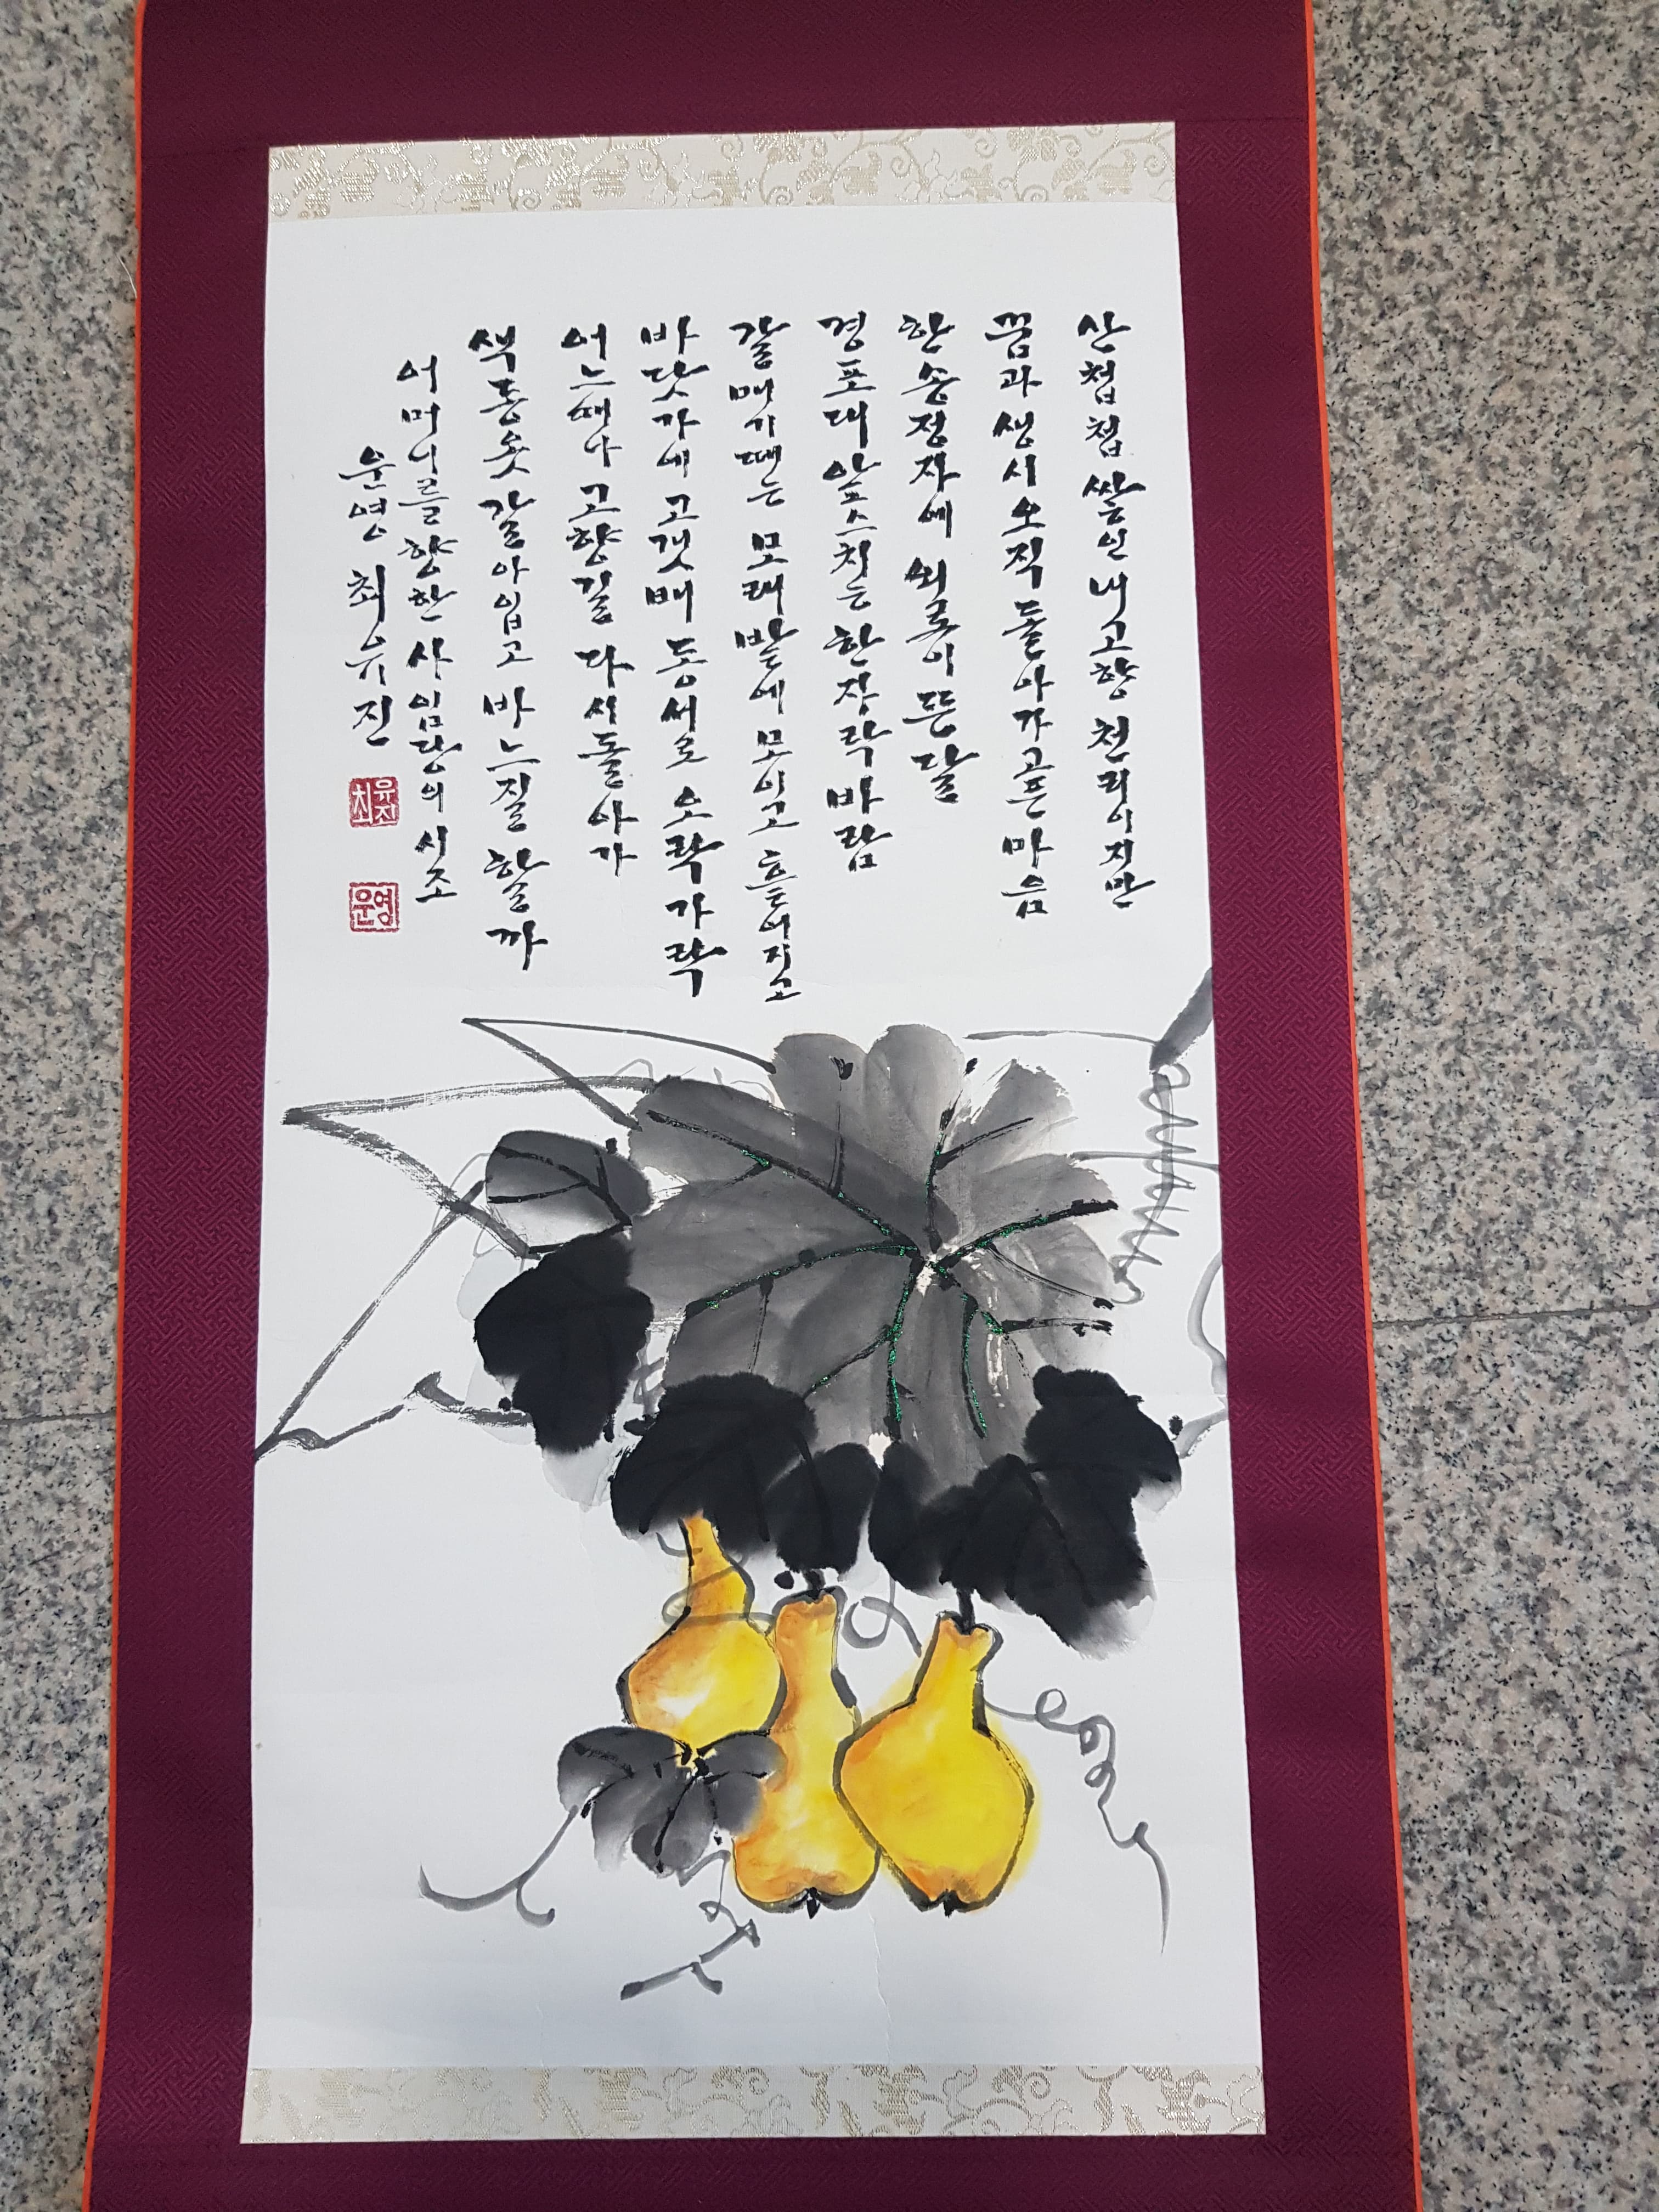 산첩첩 쌓인 내고향 천리이지만
꿈과 생시 오직 돌아가고픈 마음
한송정자에 외로이 뜬 달
경포대 앞 스치는 한 장락 바람
갈매기떼는 모래밭에 모이고 흩어지고
바닷가에 고깃배 동서로 오락가락
어느때나 고향길 다시돌아가
색동옷 갈아입고 바느질 할까
어머니를 향한 사임당의 시조
운영 최유진
유진
최
영
운